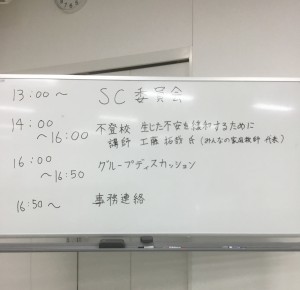 13:00～ SC委員会
14:00 不登校 生じた不安を緩和するために
～16:00 講師 工藤 拓哉 氏 (みんなの家庭教師 代表)
16:00 グループディスカッション
～16:50
16:50～ 事務連絡